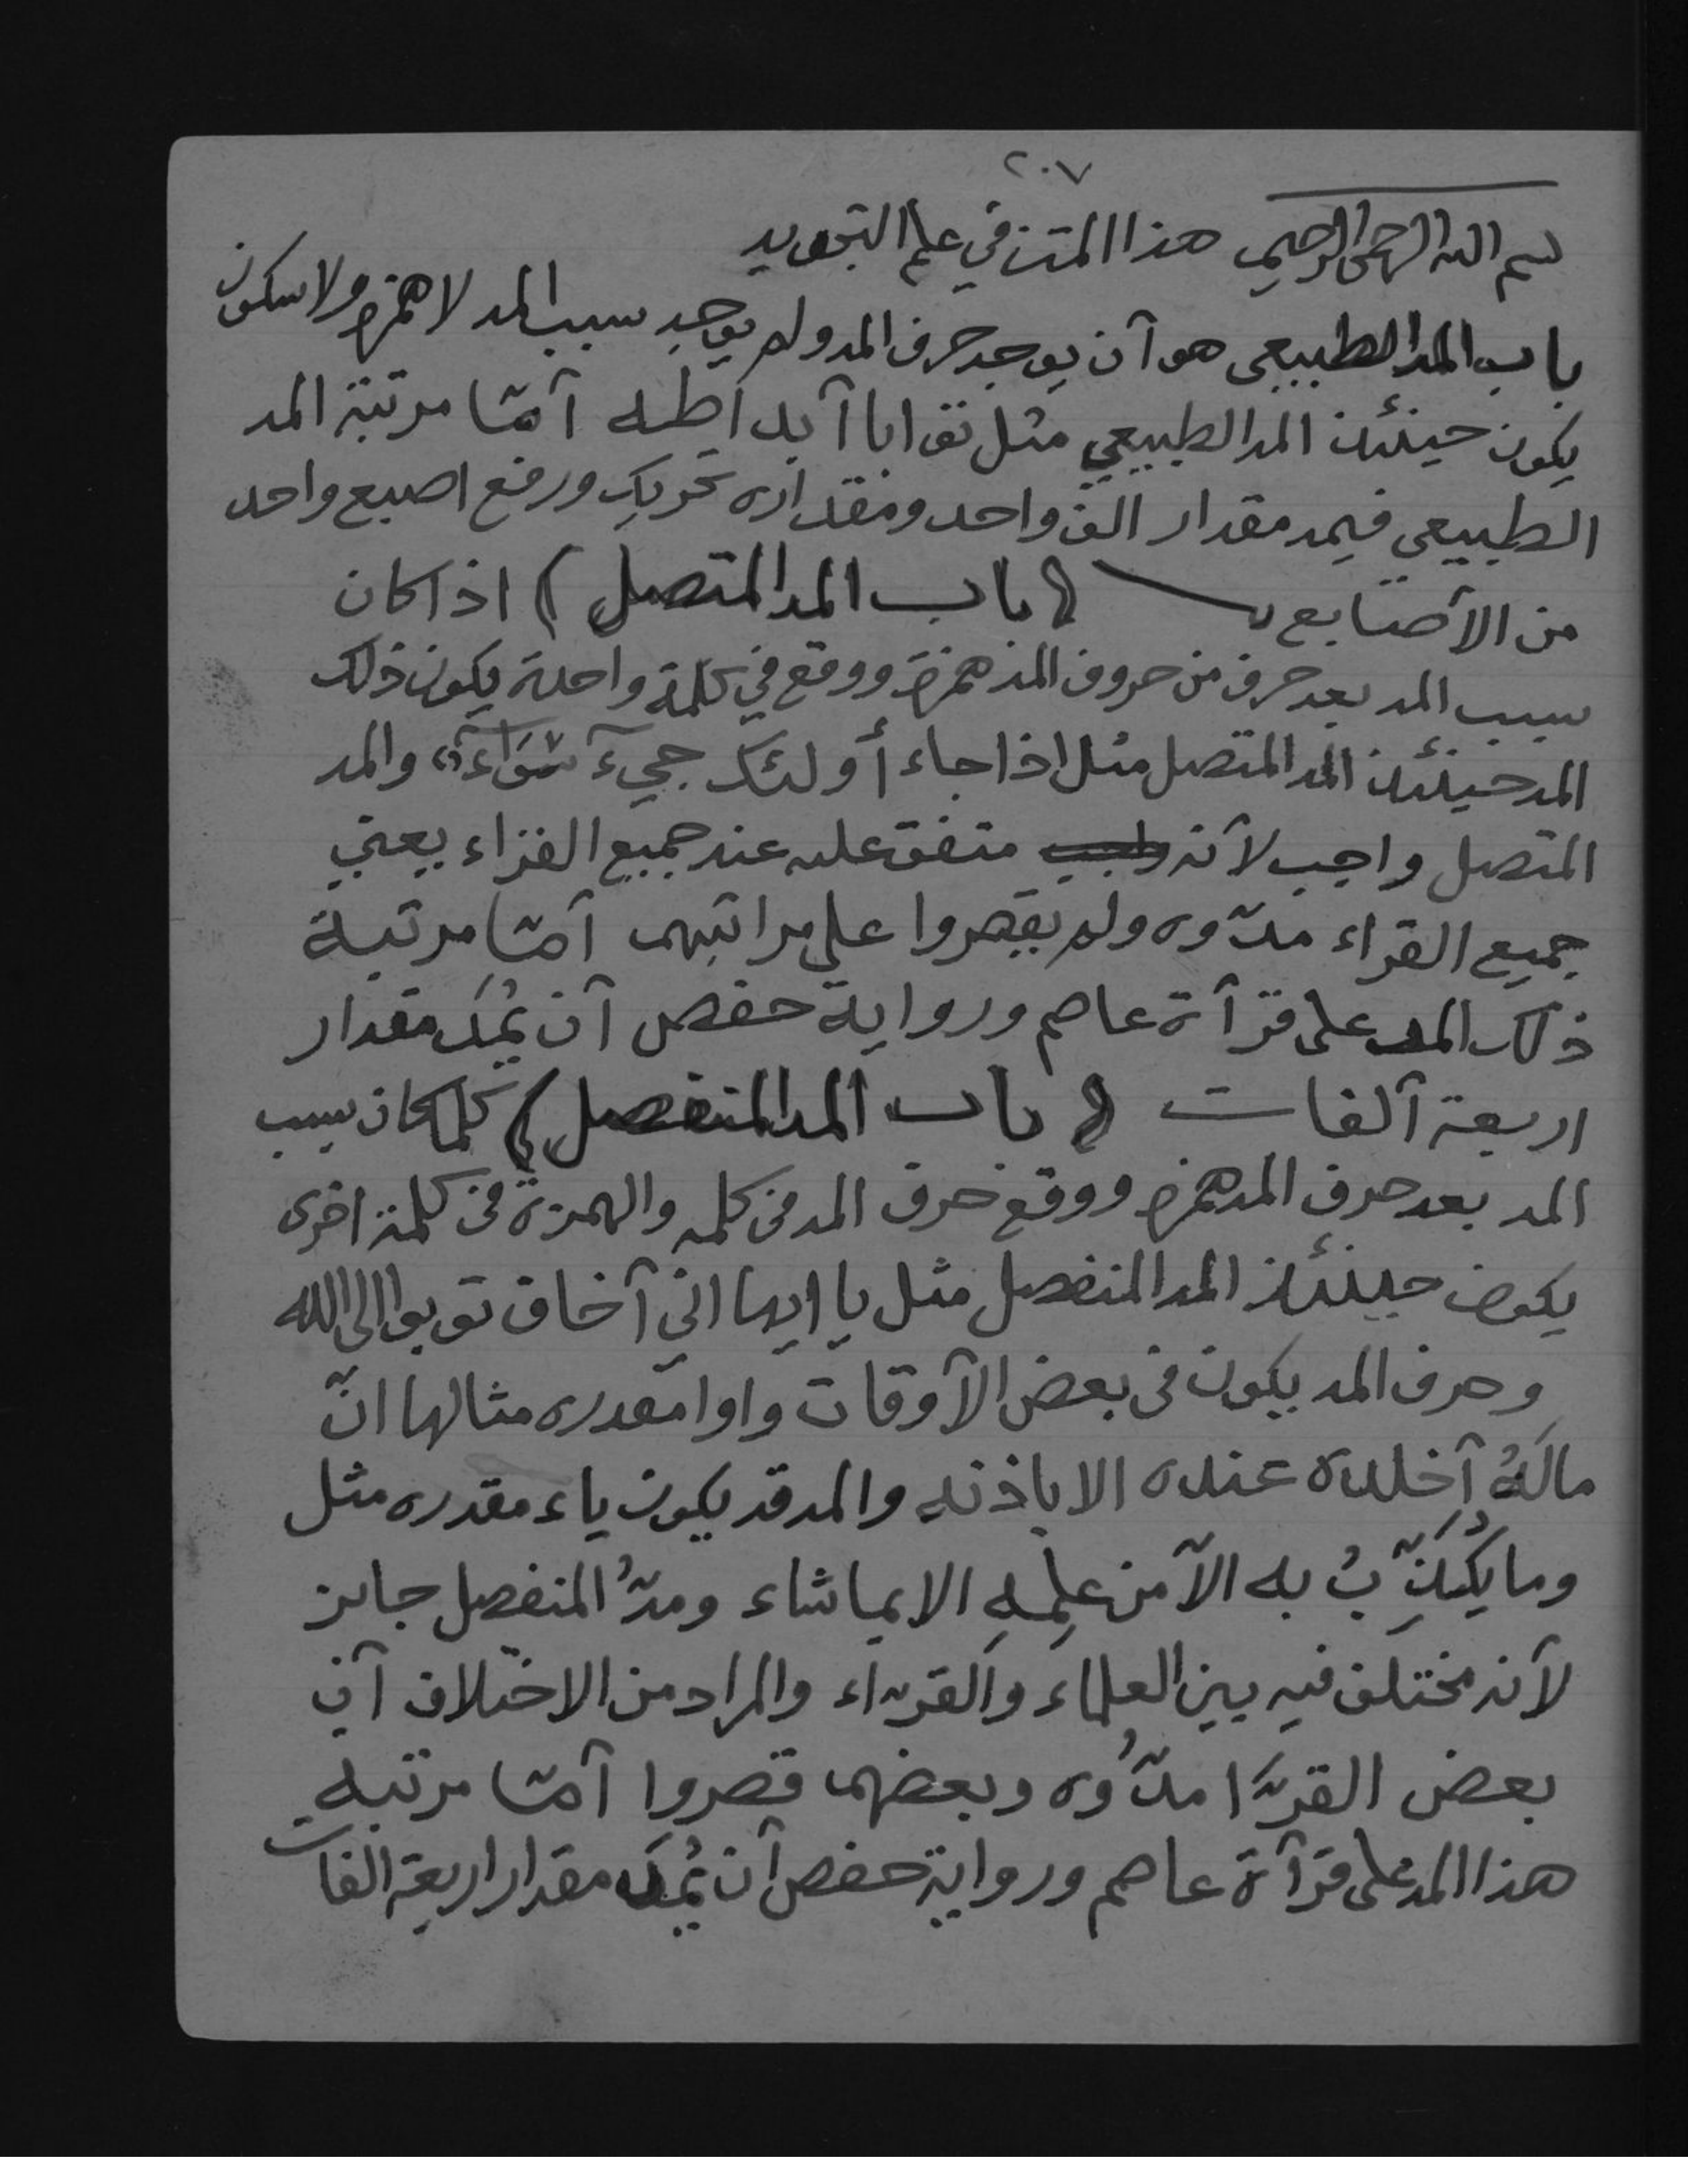 ٢٠٧
بسم الله الرحمن الرحيم هذا المتن في علم التجويد
باب المد الطبيعي هو آن يوجد حرف المد ولم يوجد سبب المد لا همزه ولا سكون
يكون حينئذ المد الطبيعي مثل آمّا مرتبة المد
الطبيعي فيمد مقدار الف واحد ومقداره تحريك ورفع اصبع واحد
من الآصابع (باب المد المتصل) اذا كان
سبب المد بعد حرف من حروف المد همزة ووقع في كلمة واحدة يكون ذلك
المد حينئذ المد المتصل مثل اذا جاء أولئك جيء سَوَاءٓ والمد
المتصل واجب لآنه متفق عليه عند جميع القراء يعني
جميع القراء مدّوه ولم يقصروا على مراتبهم آمّا مرتبة
ذلك المد على قرآة عاصم ورواية حفص آن يُمَدَ مقدار
اربعة آلفات (باب المد المنفصل) كلما كان سبب
المد بعد حرف المد همزه ووقع حرف المد في كلمه والهمزة في كلمة اخرى
يكون حينئذ المد المنفصل مثل يا ايها اني آخاف توبوا الى الله
وحرف المد يكون في بعض الآوقات واوا مقدره مثالها انّ
مالَهُ آخلده عنده الا باذنه والمد قد يكون ياء مقدره مثل
وما يُكَذِّبُ به الآ من علمِهِ الا بما شاء ومدّ المنفصل جايز
لآنه مختلف فيه بين العلماء والقرّاء والمراد من الاختلاف آن
بعض القرّا مدُّوه وبعضهم قصروا آمّا مرتبه
هذا المد على قرآة عاصم ورواية حفص آن يُمَدَ مقدار اربعة الفات